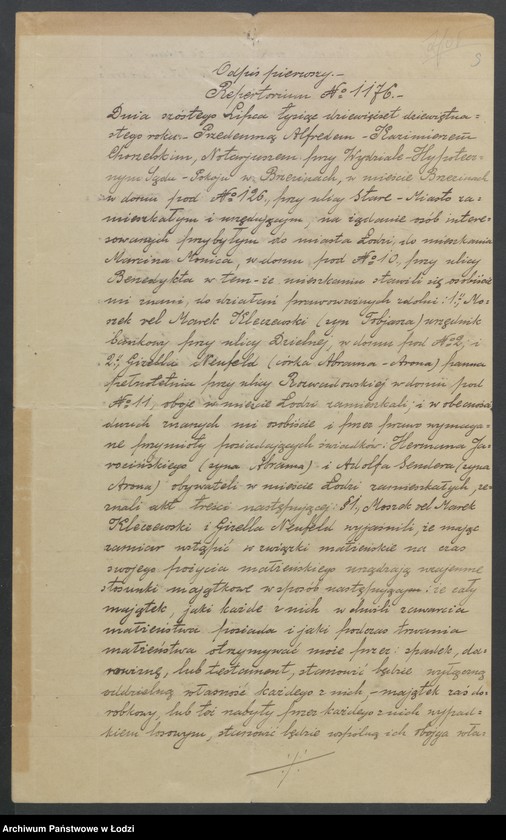 3
Odpis pierwszy.-
Repertorium № 1176.-
Dnia szóstego Lipca tysiąc dziewięćset dziewiętna=
stego roku.- Przedemną Alfredem - Kazimierzem
Chorelskim, Notarjuszem przy Wydziale - Hypotecz=
nym Sądu - Pokoju w Brzezinach, w mieście Brzezinach
w domu pod № 126, przy ulicy Stare - Miasto za=
mieszkałym i urzędującym, na żądanie osób intere=
sowanych przybyłym do miasta Łodzi, do mieszkania
Marcina Monica, w domu pod № 10, przy ulicy
Benedykta w tem-że mieszkaniu stawili się osobiście
mi znani, do działań prawozwanych zdolni: 1:, Mo=
szek vel Marek Kleczewski (syn Tobjasza) urzędnik
bankowy przy ulicy Dzielnej, w domu pod № 2; i
2:, Gizella Neufeld (córka Abrama - Arona) panna
pełnoletnia przy ulicy Rozwadowskiej w domu pod
№ 11, oboje w mieście Łodzi zamieszkali; i w obecności
dwóch znanych mi osobiście i przez prawo wymaga=
ne przymioty posiadających świadków: Hermana Ja=
rocińskiego (syna Abrama) i Adolfa Sendera (syna
Arona) obywateli w mieście Łodzi zamieszkałych, ze=
znali akt treści następującej: §1, Moszek vel Marek
Kleczewski i Gizella Neufeld wyjaśnili, że mając
zamiar wstąpić w związki małżeńskie na czas
swojego pożycia małżeńskiego urządzają wzajemne
stosunki majątkowe w sposób następujący: że cały
majątek, jaki każde z nich w chwili zawarcia
małżeństwa posiada i jaki podczas trwania
małżeństwa otrzymywać może przez: spadek, da=
rowiznę, lub testament, stanowić będzie wyłączną
oddzielną własność każdego z nich, - majątek zaś do=
robkowy, lub też nabyty przez każdego z nich wypad=
kiem losowym, stanowić będzie wspólną ich obojga wła=
Archiwum Państwowe w Łodzi